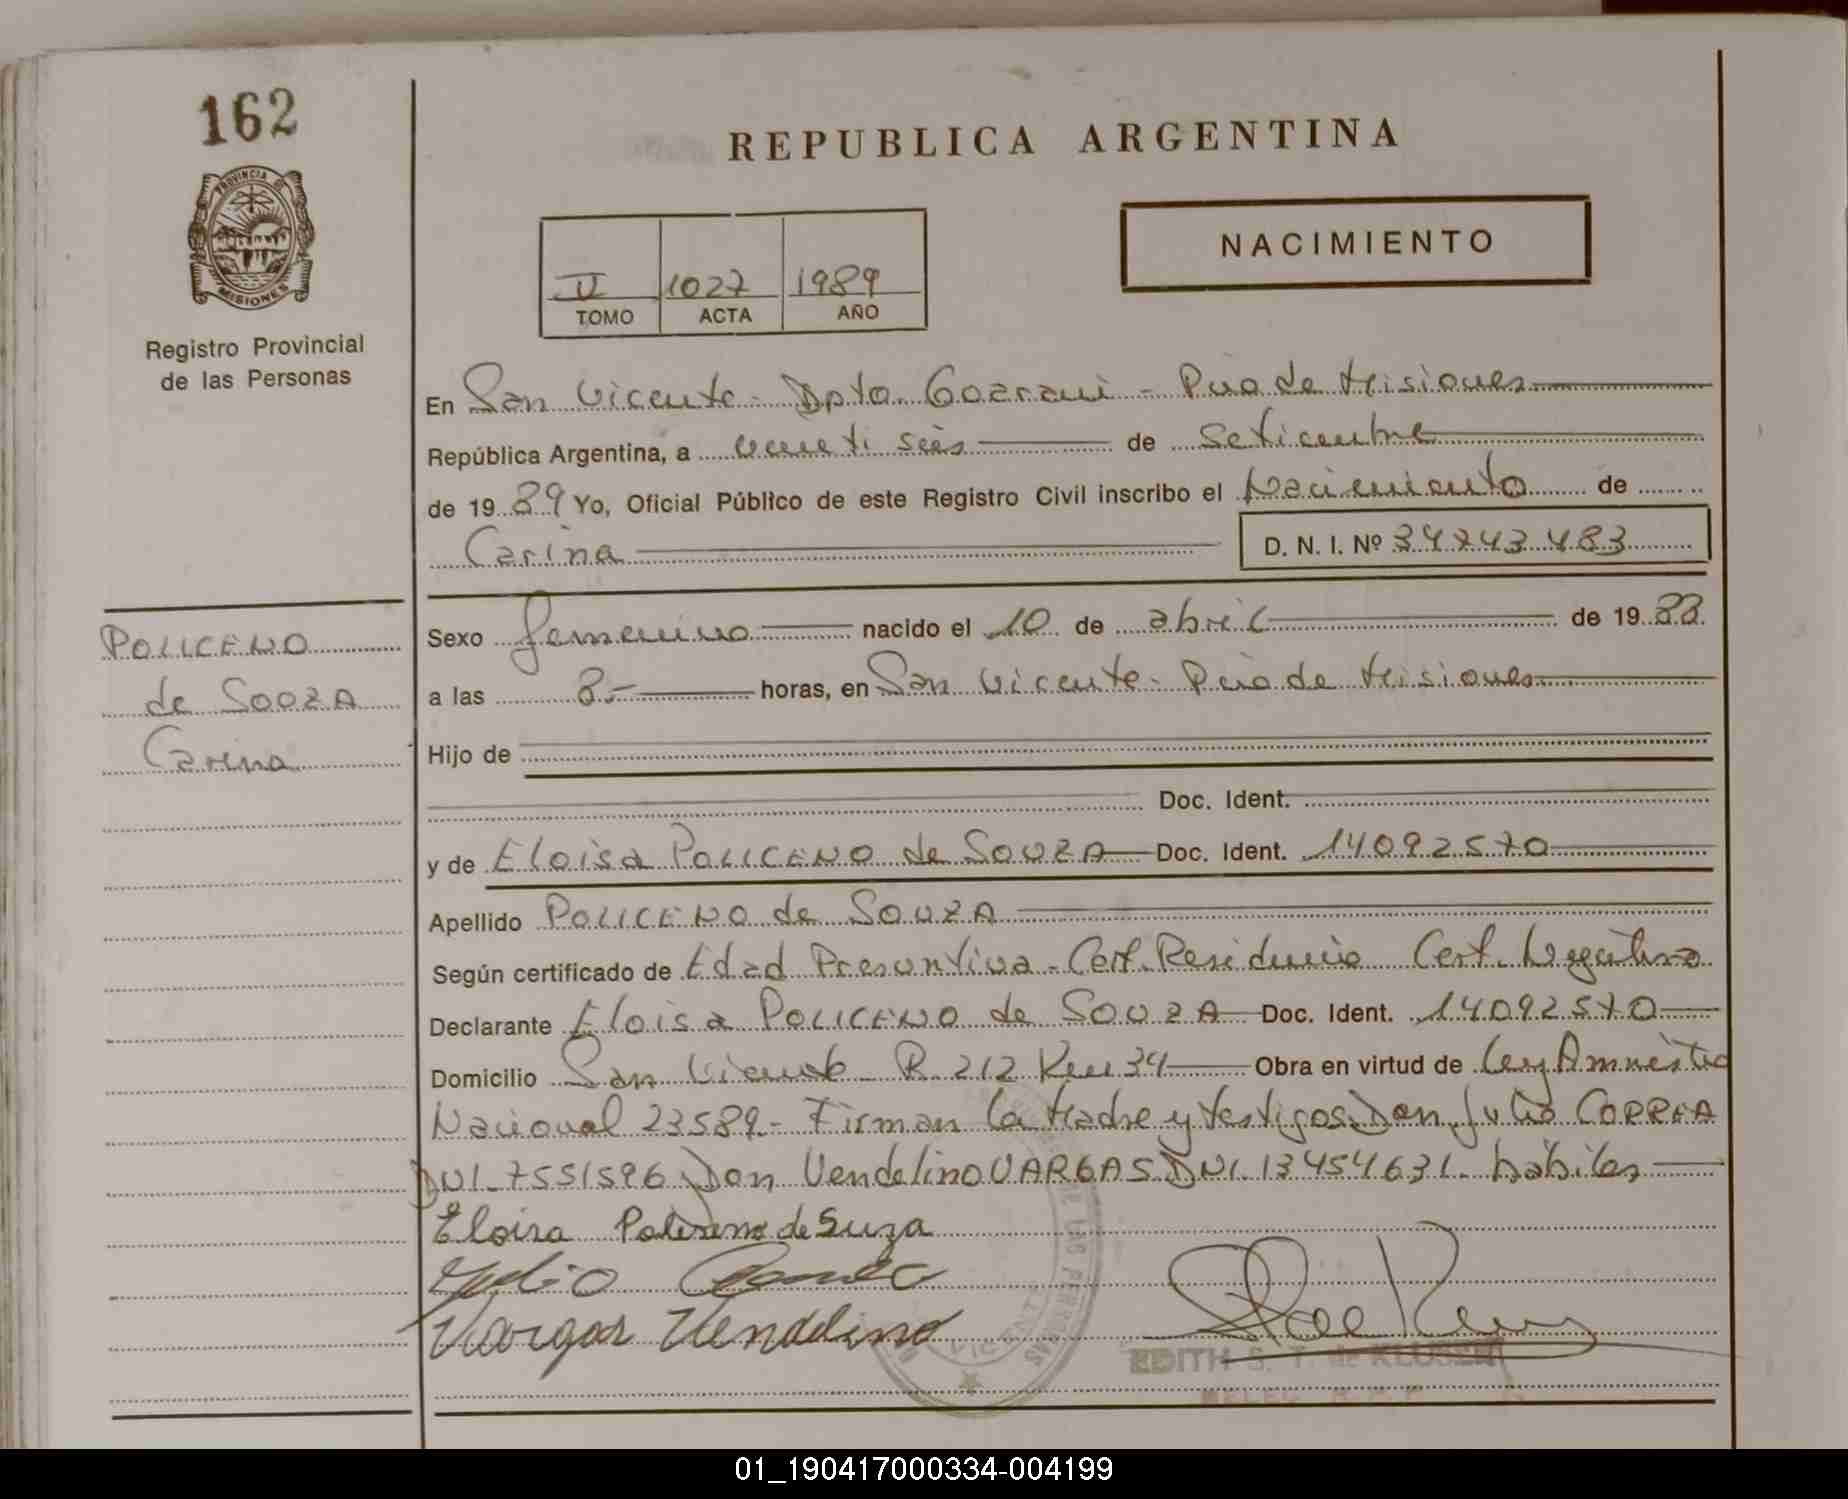 162
REPUBLICA ARGENTINA
PROVINCIA DE
MISIONES
Registro Provincial
de las Personas
NACIMIENTO
II 1027 1989
TOMO ACTA AÑO
En San Vicente - Dpto. Guarani - Pcia de Misiones
República Argentina, a veinti seis de Setiembre
de 1989 Yo, Oficial Público de este Registro Civil inscribo el Nacimiento de
Carina D. N. I. Nº 34743483
POLICENO
de SOUZA
Carina
Sexo femenino nacido el 10 de abril de 1988
a las 8.- horas, en San Vicente - Pcia de Misiones
Hijo de
Doc. Ident.
y de Eloisa POLICENO de SOUZA Doc. Ident. 14092570
Apellido POLICENO de SOUZA
Según certificado de Edad Presuntiva - Cert. Residencia Cert. Negativo
Declarante Eloisa POLICENO de SOUZA Doc. Ident. 14092570
Domicilio San Vicente R. 212 Km 34 Obra en virtud de Ley Amnistia
Nacional 23589.- Firman la Madre y testigos Don Julio CORREA
DNI. 7551596 Don Vendelino VARGAS DNI. 13454631. habiles
Eloisa de Suza
Julio
Vargas Vendelino
EDITH S. T. de
01_190417000334-004199